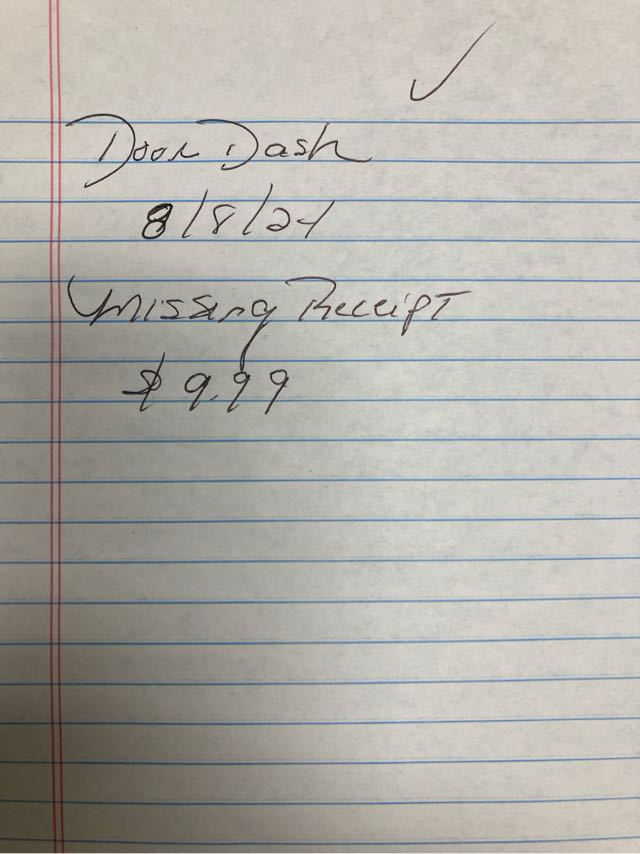 Door Dash
8/8/24
Missing Receipt
$9.99